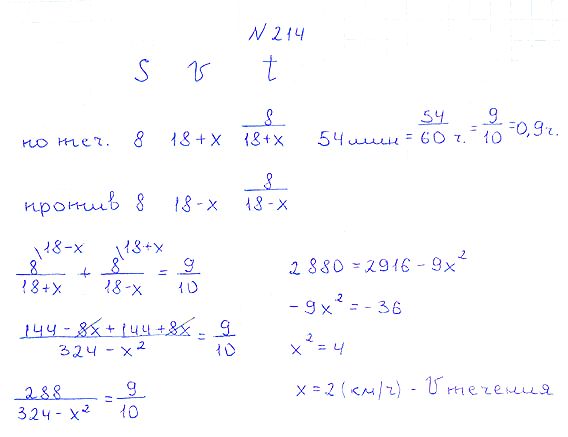 N 214
S v t
по теч. 8 18+x 8/(18+x) 54 мин = 54/60 ч. = 9/10 = 0,9 ч.
против 8 18-x 8/(18-x)
8\18-x/(18+x) + 8\18+x/(18-x) = 9/10
(144 - 8x + 144 + 8x)/(324 - x²) = 9/10
288/(324 - x²) = 9/10
2880 = 2916 - 9x²
-9x² = -36
x² = 4
x = 2 (км/ч) - V течения